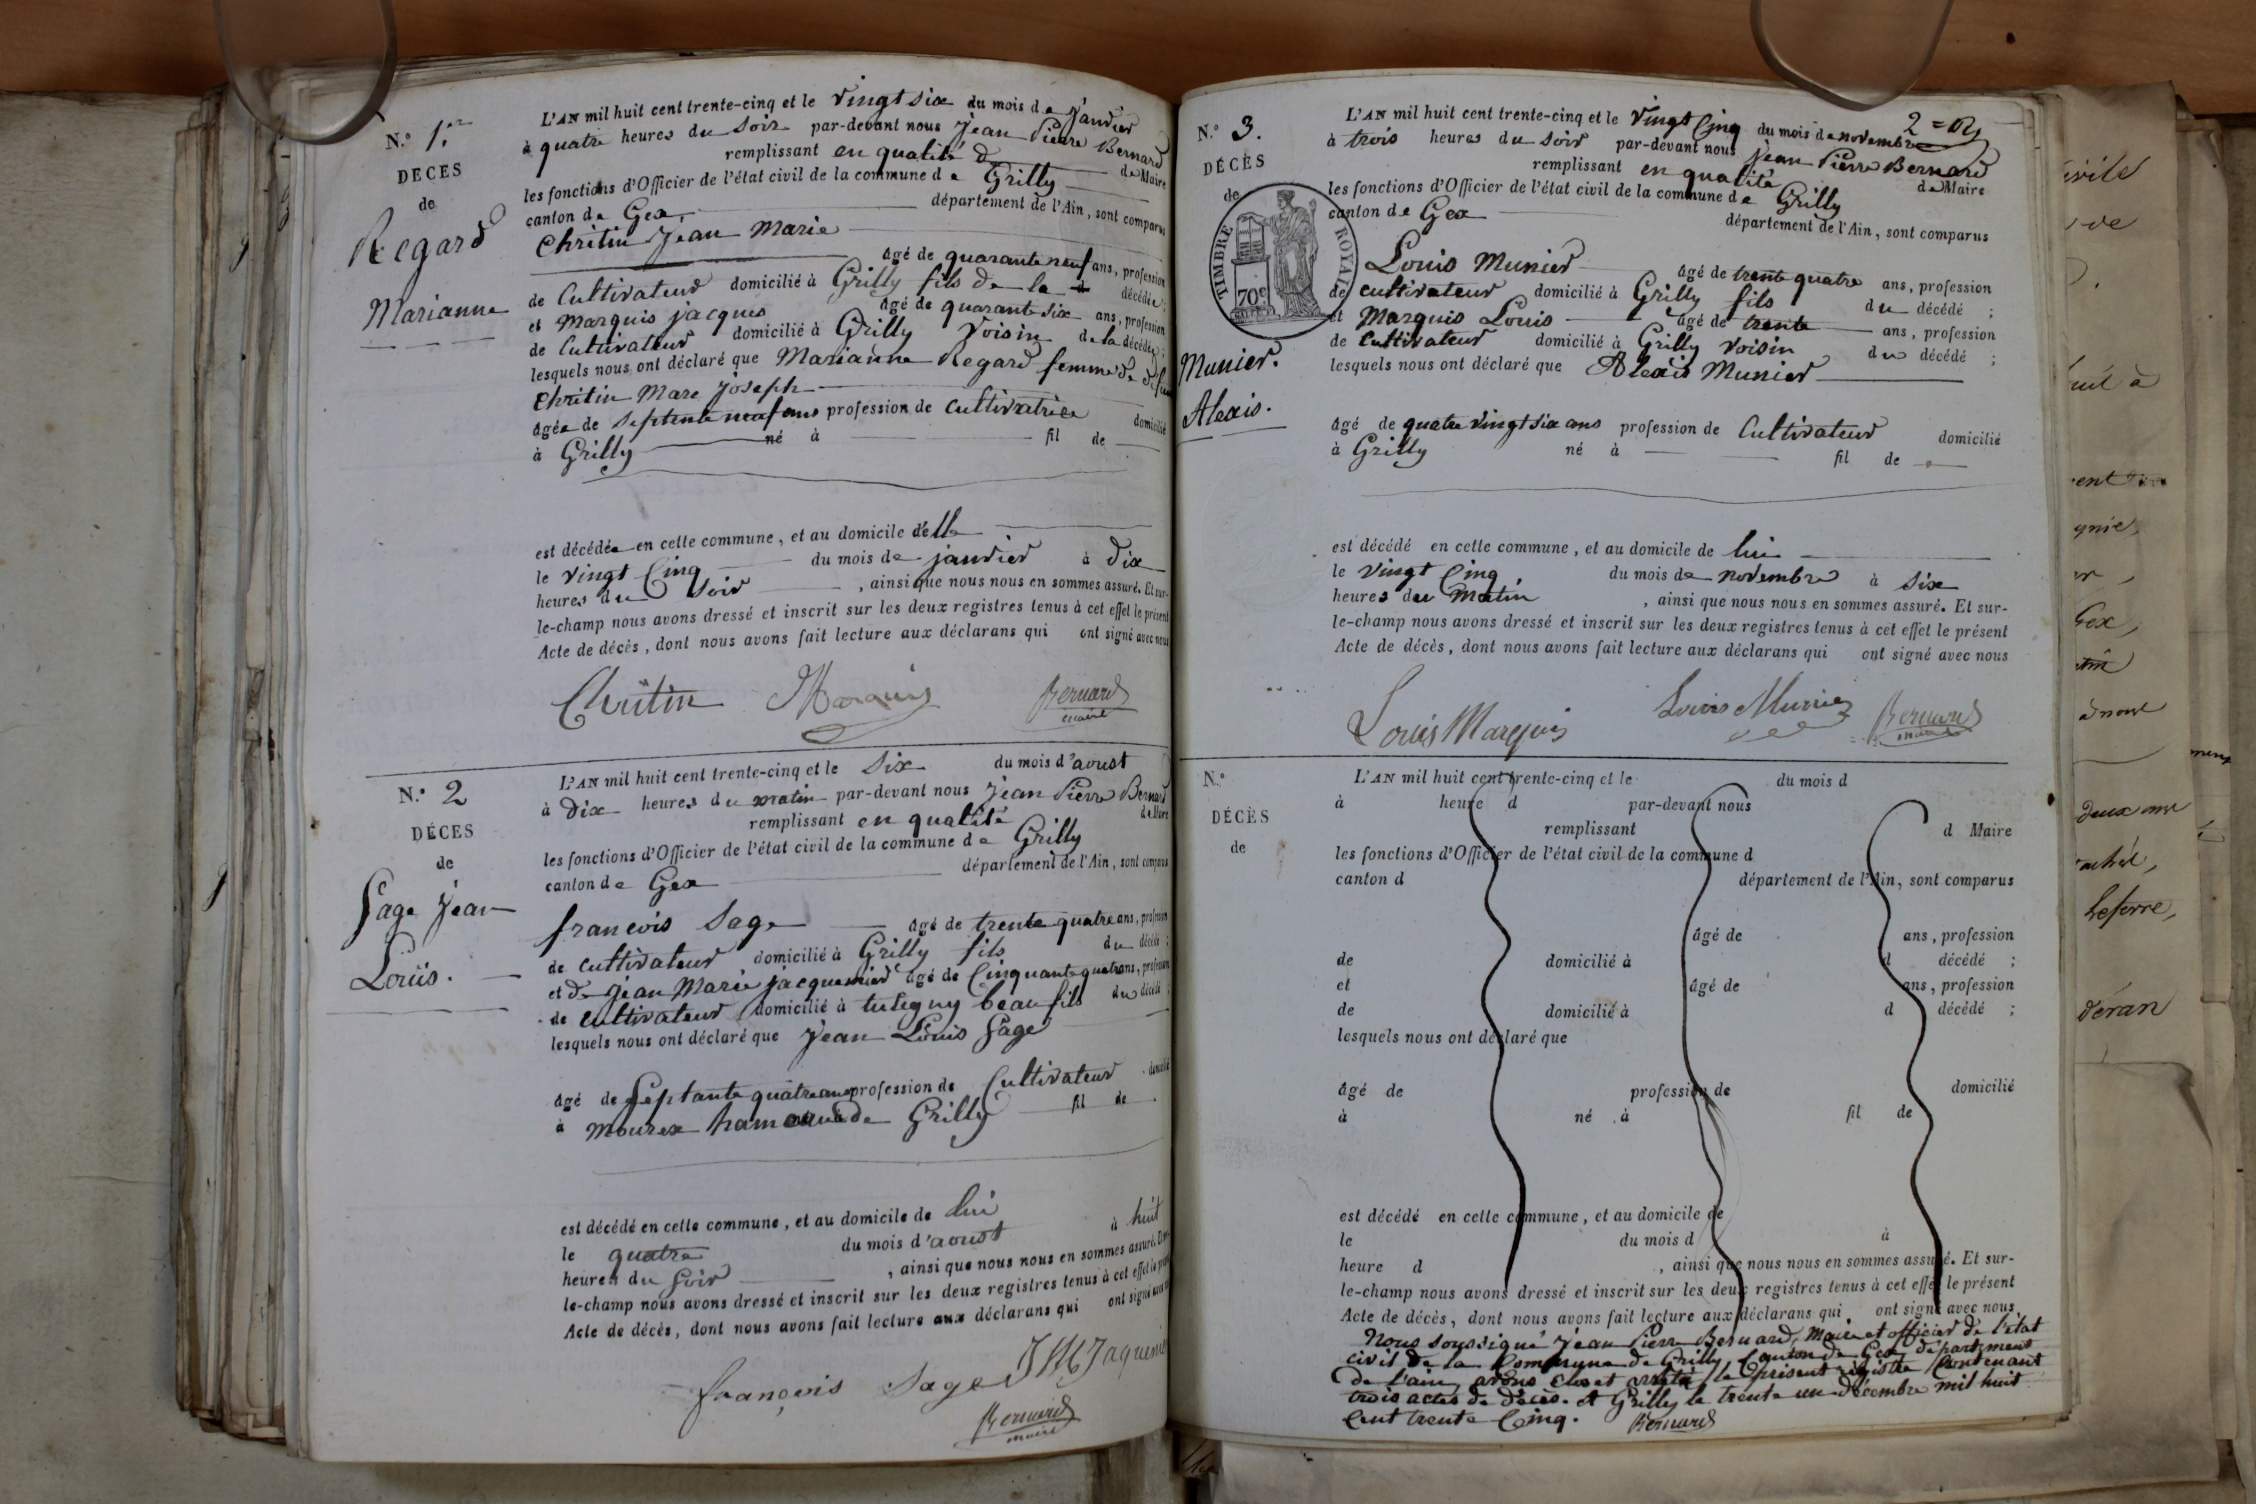 N.° 1.er
DÉCES
de
Regard
Marianne
L'AN mil huit cent trente-cinq et le vingt six du mois de janvier
à quatre heures du soir par-devant nous Jean Pierre Bernard
remplissant en qualité de Maire
les fonctions d'Officier de l'état civil de la commune de Grilly
canton de Gex département de l'Ain, sont comparus
Chritin Jean Marie
âgé de quarante neuf ans, profession
de Cultivateur domicilié à Grilly fils de la décédée ;
et Marquis jacques âgé de quarante six ans, profession
de Cultivateur domicilié à Grilly Voisin de la décédée ;
lesquels nous ont déclaré que Marianne Regard femme de
Chritin Marc Joseph
âgée de septante neuf ans profession de Cultivatrice domicilié
à Grilly né à fil de
est décédée en cette commune, et au domicile d'elle
le vingt Cinq du mois de janvier à dix
heures du soir , ainsi que nous nous en sommes assuré. Et sur-
le-champ nous avons dressé et inscrit sur les deux registres tenus à cet effet le présent
Acte de décès, dont nous avons fait lecture aux déclarans qui ont signé avec nous
Chritin Marquis Bernard
maire
N.° 2
DÉCES
de
Sage Jean
Louis.
L'AN mil huit cent trente-cinq et le six du mois d'aoust
à dix heures du matin par-devant nous Jean Pierre Bernard
remplissant en qualité de Maire
les fonctions d'Officier de l'état civil de la commune de Grilly
canton de Gex département de l'Ain, sont comparus
francois Sage âgé de trente quatre ans, profession
de cultivateur domicilié à Grilly fils du décédé ;
et de Jean Marie jacquemier âgé de Cinquante quatre ans, profession
de cultivateur domicilié à tutegny beau fils du décédé ;
lesquels nous ont déclaré que Jean Louis Sage
âgé de Septante quatre ans profession de Cultivateur domicilié
à mourex hameau de Grilly fil de
est décédé en cette commune, et au domicile de lui
le quatre du mois d'aoust à huit
heures du soir , ainsi que nous nous en sommes assuré. Et sur-
le-champ nous avons dressé et inscrit sur les deux registres tenus à cet effet le présent
Acte de décès, dont nous avons fait lecture aux déclarans qui ont signé avec nous
françois Sage J M Jaquemier
Bernard
maire
2 =
N.° 3.
DÉCÈS
de
TIMBRE ROYAL
70c
Munier.
Alexis.
L'AN mil huit cent trente-cinq et le vingt Cinq du mois de novembre
à trois heures du soir par-devant nous Jean Pierre Bernard
remplissant en qualité de Maire
les fonctions d'Officier de l'état civil de la commune de Grilly
canton de Gex département de l'Ain, sont comparus
Louis Munier âgé de trente quatre ans, profession
de cultivateur domicilié à Grilly fils du décédé ;
et Marquis Louis âgé de trente ans, profession
de Cultivateur domicilié à Grilly voisin du décédé ;
lesquels nous ont déclaré que Alexis Munier
âgé de quatre vingt six ans profession de Cultivateur domicilié
à Grilly né à fil de
est décédé en cette commune, et au domicile de lui
le vingt Cinq du mois de novembre à six
heures du Matin , ainsi que nous nous en sommes assuré. Et sur-
le-champ nous avons dressé et inscrit sur les deux registres tenus à cet effet le présent
Acte de décès, dont nous avons fait lecture aux déclarans qui ont signé avec nous
Louis Marquis Louis Munier Bernard
maire
N.°
DÉCÈS
de
L'AN mil huit cent trente-cinq et le du mois d
à heure d par-devant nous
remplissant d Maire
les fonctions d'Officier de l'état civil de la commune d
canton d département de l'Ain, sont comparus
âgé de ans, profession
de domicilié à d décédé ;
et âgé de ans, profession
de domicilié à d décédé ;
lesquels nous ont déclaré que
âgé de profession de domicilié
à né à fil de
est décédé en cette commune, et au domicile de
le du mois d à
heure d , ainsi que nous nous en sommes assuré. Et sur-
le-champ nous avons dressé et inscrit sur les deux registres tenus à cet effet le présent
Acte de décès, dont nous avons fait lecture aux déclarans qui ont signé avec nous
Nous soussigné Jean Pierre Bernard, Maire et officier de l'état
civil de la Commune de Grilly, Canton de Gex département
de l'ain, avons clos et arrêté le présent registre Contenant
trois actes de décès. et Grilly le trente un décembre mil huit
Cent trente Cinq. Bernard